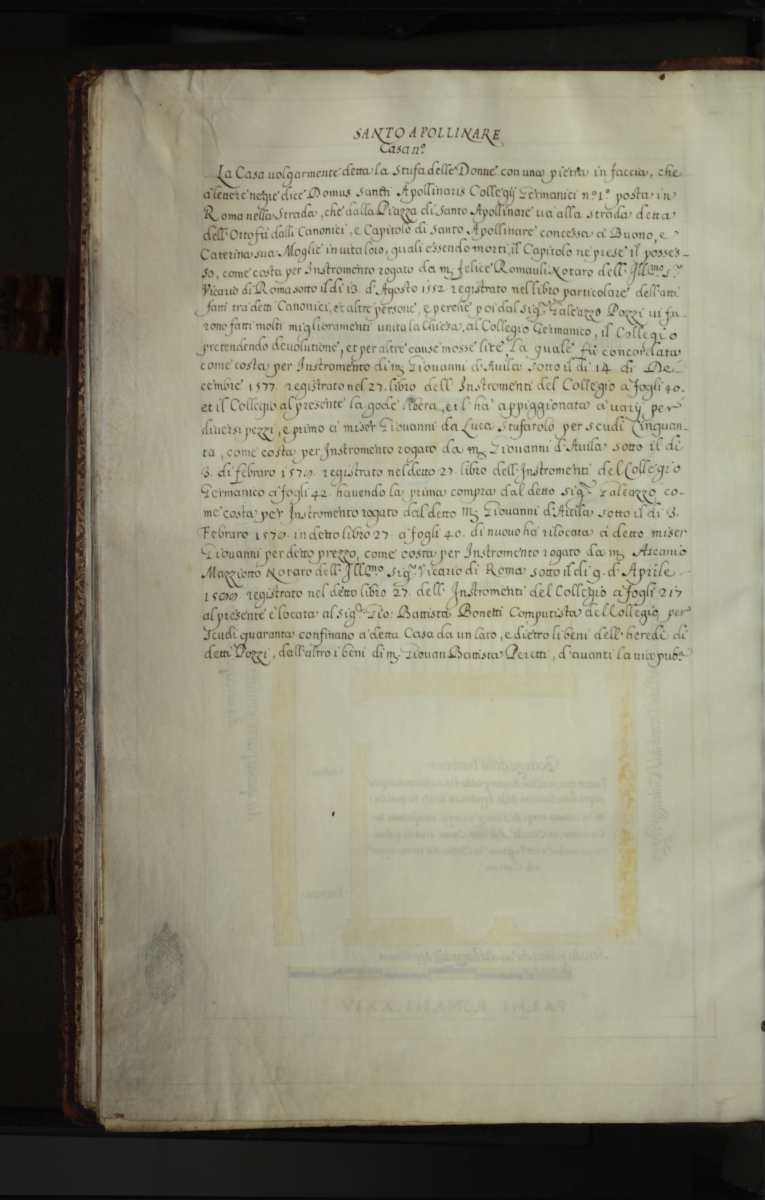 SANTO APOLLINARE
Casa nº
La Casa volgarmente detta la Stufa delle Donne con una pietra in faccia, che
a lettere negre dice Domus Sancti Apollinaris Collegij Germanici nº 1º posta in
Roma nella Strada, che dalla Piazza di Santo Apollinare va alla strada detta
dell'Otto fù dalli Canonici, e Capitolo di Santo Apollinare concessa à Buono, e
Caterina sua Moglie in vita loro, quali essendo morti, il Capitolo ne prese il posses-
so, come costa per Instromento rogato da m. felice Romauli Notaro dell'Illmo S.r
Vicario di Roma sotto il di 13. d'Agosto 1552 registrato nel libro particolare dell'atti
fatti tra detti Canonici, et altre persone, e perche poi dal Sigr. Galeazzo Pozzi vi fu-
rono fatti molti miglioramenti unita la Chiesa, al Collegio Germanico, il Collegio
pretendendo devolutione, et per altre cause mosse lite, La quale fù concordata
come costa per Instromento di m. Giovanni d'Avila sotto il di 14. di De-
cembre 1577. registrato nel 27. libro dell'Instromenti del Collegio à fogli 40.
et il Collegio al presente la gode libera, et l'ha appiggionata à varij per
diversi pezzi, e primo à miser Giovanni da Luca Stufarolo per scudi Cinquan-
ta, come costa per Instromento rogato da m. Giovanni d'Avila sotto il di
3. di febraro registrato nel detto 27. libro dell'Instromenti del Collegio
Germanico à fogli 42. havendo la prima compra dal detto Sigr. Galeazzo, co-
me costa per Instromento rogato dal detto m. Giovanni d'Avila sotto il di 3.
Febraro in detto libro 27. à fogli 40. di nuovo ha rilocata à detto miser
Giovanni per detto prezzo, come costa per Instromento rogato da m. Ascanio
Mazziotto Notaro dell'Illmo Sigr. Vicario di Roma sotto il di 9. d'Aprile
registrato nel detto libro 27. dell'Instromenti del Collegio à fogli 217
al presente è locata al Sigr. Gio: Battista Bonetti Computista del Collegio per
Scudi quaranta confinano à detta Casa da un lato, e dietro li beni dell'herede di
detti Pozzi, dall'altro i beni di m. Giovan Battista Peretti, d'avanti la via pub.a